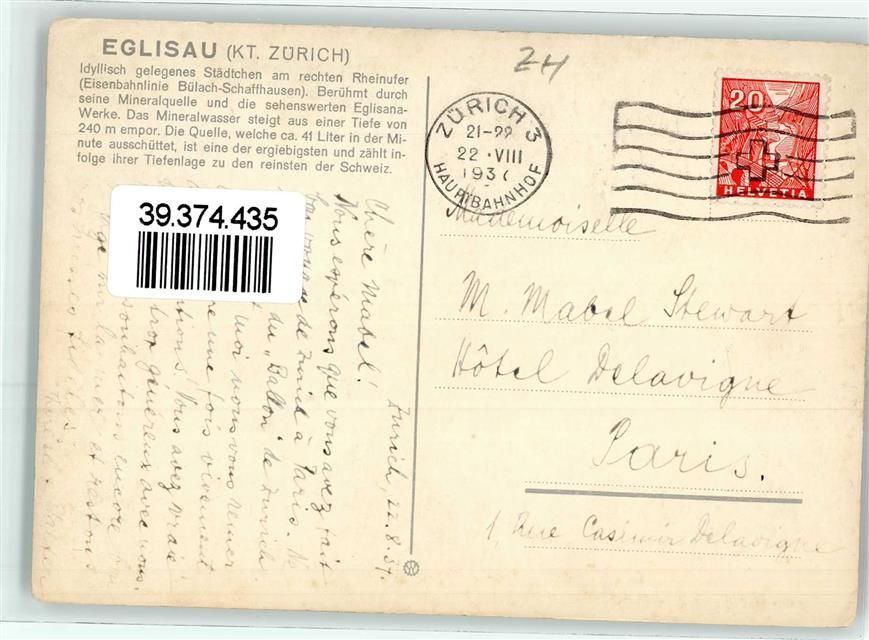 EGLISAU (KT. ZÜRICH)
Idyllisch gelegenes Städtchen am rechten Rheinufer
(Eisenbahnlinie Bülach-Schaffhausen). Berühmt durch
seine Mineralquelle und die sehenswerten Eglisana-
Werke. Das Mineralwasser steigt aus einer Tiefe von
240 m empor. Die Quelle, welche ca. 41 Liter in der Mi-
nute ausschüttet, ist eine der ergiebigsten und zählt in-
folge ihrer Tiefenlage zu den reinsten der Schweiz.
ZH
ZÜRICH 3
21-22
22 · VIII
193
HAUPTBAHNHOF
20
HELVETIA
39.374.435
Zürich, 22.8.37.
Chère Mabel!
Nous espérons que vous avez fait
bon voyage de Zurich à Paris.
du „Ballon" de Zurich.
moi nous vous remer
une fois vivement
Vous avez
trop généreux avec nous.
souhaitons encore
et restons
Mademoiselle
M. Mabel Stewart
Hôtel Delavigne
Paris.
1, Rue Casimir Delavigne